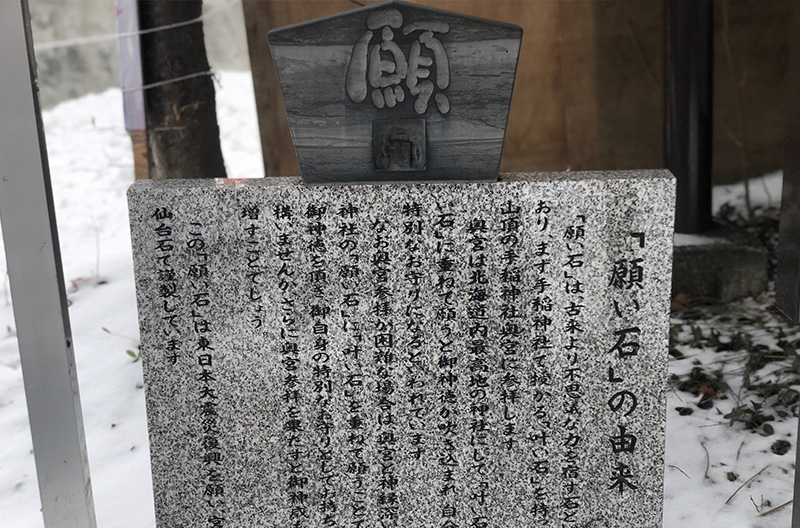 願
「願い石」の由来
「願い石」は、古来より不思議な力を宿すとされて
おり、まず手稲神社で授かる「叶い石」を持
山頂の手稲神社奥宮に参拝します
奥宮は北海道内最高地の神社にして「叶い石
い石」に重ねて願うと御神徳が吹き込まれ自分
特別なお守りになるといわれています
なお奥宮参拝が困難な場合は奥宮と神経
神社の「願い石」に「叶い石」を重ねて願うことで
御神徳を頂き御自身の特別なお守りとしてお持ち
構いませんがさらに奥宮参拝を果たすと御神威も
増すことでしょう
この「願い石」は東日本大震災復興を願い、宮
仙台石で謹製しています